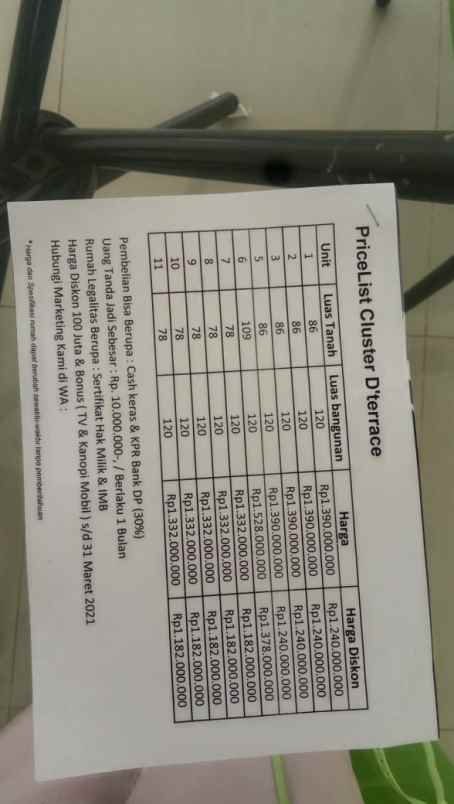 PriceList Cluster D'terrace
Unit Luas Tanah Luas bangunan Harga Harga Diskon
1 86 120 Rp1.390.000.000 Rp1.240.000.000
2 86 120 Rp1.390.000.000 Rp1.240.000.000
3 86 120 Rp1.390.000.000 Rp1.240.000.000
5 86 120 Rp1.390.000.000 Rp1.240.000.000
6 109 120 Rp1.528.000.000 Rp1.378.000.000
7 78 120 Rp1.332.000.000 Rp1.182.000.000
8 78 120 Rp1.332.000.000 Rp1.182.000.000
9 78 120 Rp1.332.000.000 Rp1.182.000.000
10 78 120 Rp1.332.000.000 Rp1.182.000.000
11 78 120 Rp1.332.000.000 Rp1.182.000.000
Pembelian Bisa Berupa : Cash keras & KPR Bank DP (30%)
Uang Tanda Jadi Sebesar : Rp. 10.000.000-, / Berlaku 1 Bulan
Rumah Legalitas Berupa : Sertifikat Hak Milik & IMB
Harga Diskon 100 Juta & Bonus ( TV & Kanopi Mobil ) s/d 31 Maret 2021
Hubungi Marketing Kami di WA :
*Harga dan Spesifikasi rumah dapat berubah sewaktu-waktu tanpa pemberitahuan